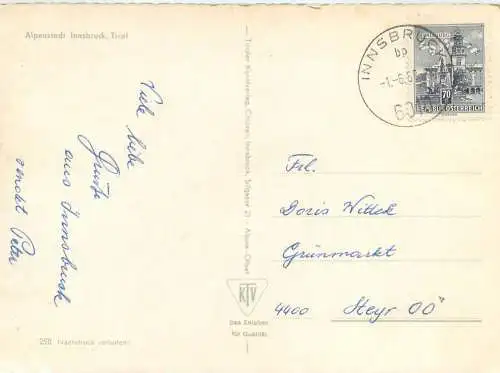 Alpenstadt Innsbruck, Tirol
Viele liebe
Grüße
aus Innsbruck
sendet Peter
258 Nachdruck verboten!
Tiroler Kunstverlag, Chizzali, Innsbruck, Sillgasse 21 - Alpina-Offset
KTV
Das Zeichen
für Qualität
INNSBRUCK
bp
-1.-6.6
60
70
REPUBLIK ÖSTERREICH
Frl.
Doris Wittek
Grünmarkt
4400 Steyr OÖ